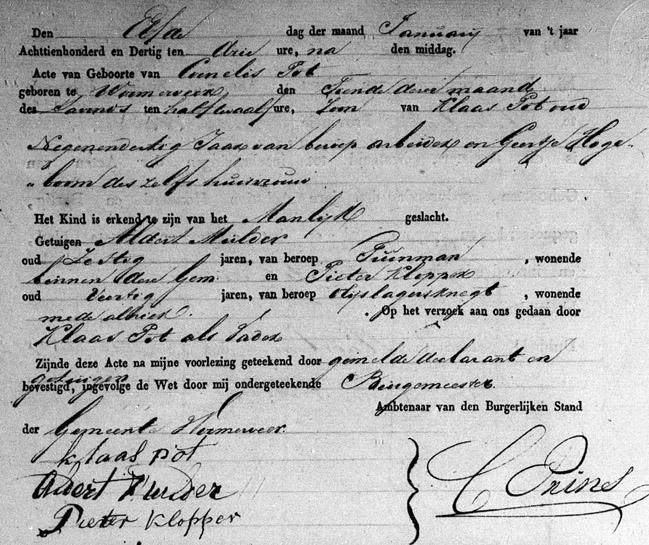 Den Elfde dag der maand Januarij van 't jaar
Achttienhonderd en Dertig ten drie ure, na den middag.
Acte van Geboorte van Cornelis Pot
geboren te Wormerveer den Tiende dezer maand
des avonds ten half twaalf ure, Zoon van Klaas Pot oud
Negenendertig Jaar van beroep arbeider en Geertje Hoge„
„boom deszelfs huisvrouw
Het Kind is erkend te zijn van het Manlijk geslacht.
Getuigen Aldert Mulder
oud Zestig jaren, van beroep Tuinman, wonende
binnen deze Gem. en Pieter Klopper
oud Veertig jaren, van beroep olyslagersknegt, wonende
mede alhier. Op het verzoek aan ons gedaan door
Klaas Pot als Vader
Zijnde deze Acte na mijne voorlezing geteekend door gemelde declarant en
getuigen
bevestigd, ingevolge de Wet door mij ondergeteekende Burgemeester
Ambtenaar van den Burgerlijken Stand
der Gemeente Wormerveer.
klaas pot
Aldert Mulder
Pieter Klopper
C Prins